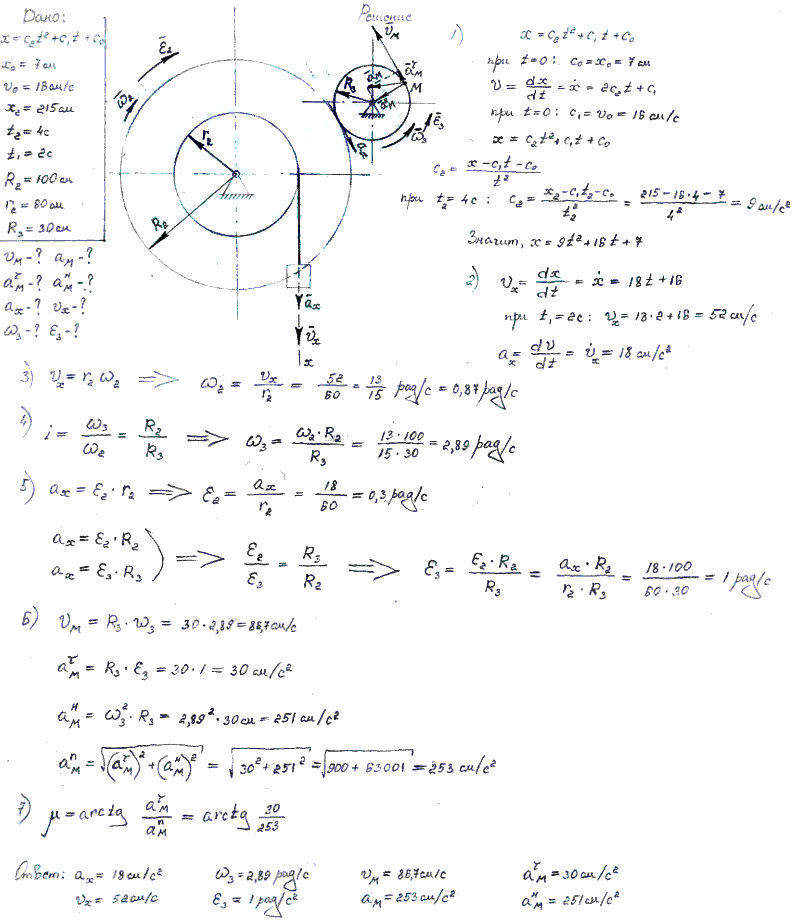 Дано:
x = c₂t² + c₁t + c₀
x₀ = 7см
v₀ = 18см/с
x₂ = 215см
t₂ = 4с
t₁ = 2с
R₂ = 100см
r₂ = 60см
R₃ = 30см
v_M - ? a_M - ?
a_M^τ - ? a_M^н - ?
a_x - ? v_x - ?
ω₃ - ? ε₃ - ?
Решение
ε̄₂
ω̄₂
r₂
R₂
1
ā_x
v̄_x
x
v̄_M
ā_M^τ
M
R₃
ε̄₃
ω̄₃
1) x = c₂t² + c₁t + c₀
при t=0: c₀ = x₀ = 7см
v = dx/dt = ẋ = 2c₂t + c₁
при t=0: c₁ = v₀ = 16 см/с
x = c₂t² + c₁t + c₀
c₂ = (x - c₁t - c₀)/t²
при t₂ = 4с: c₂ = (x₂ - c₁t₂ - c₀)/t₂² = (215 - 16·4 - 7)/4² = 9 см/с²
Значит, x = 9t² + 16t + 7
2) v_x = dx/dt = ẋ = 18t + 16
при t₁ = 2с: v_x = 18·2 + 16 = 52 см/с
a_x = dv/dt = v̇_x = 18 см/с²
3) v_x = r₂ω₂ ⟹ ω₂ = v_x/r₂ = 52/60 = 13/15 рад/с = 0,87 рад/с
4) i = ω₃/ω₂ = R₂/R₃ ⟹ ω₃ = ω₂·R₂/R₃ = 13·100/15·30 = 2,89 рад/с
5) a_x = ε₂·r₂ ⟹ ε₂ = a_x/r₂ = 18/60 = 0,3 рад/с
a_x = ε₂·R₂
a_x = ε₃·R₃ ) ⟹ ε₂/ε₃ = R₃/R₂ ⟹ ε₃ = ε₂·R₂/R₃ = a_x·R₂/r₂·R₃ = 18·100/60·30 = 1 рад/с
6) v_M = R₃·ω₃ = 30·2,89 = 86,7см/с
a_M^τ = R₃·ε₃ = 30·1 = 30 см/с²
a_M^н = ω₃²·R₃ = 2,89²·30см = 251 см/с²
a_M^п = √((a_M^τ)² + (a_M^н)²) = √(30² + 251²) = √(900 + 63001) = 253 см/с²
7) μ = arctg a_M^τ/a_M^п = arctg 30/253
Ответ: a_x = 18см/с² ω₃ = 2,89 рад/с v_M = 86,7см/с a_M^τ = 30см/с²
v_x = 52см/с ε₃ = 1 рад/с² a_M = 253см/с² a_M^н = 251см/с²